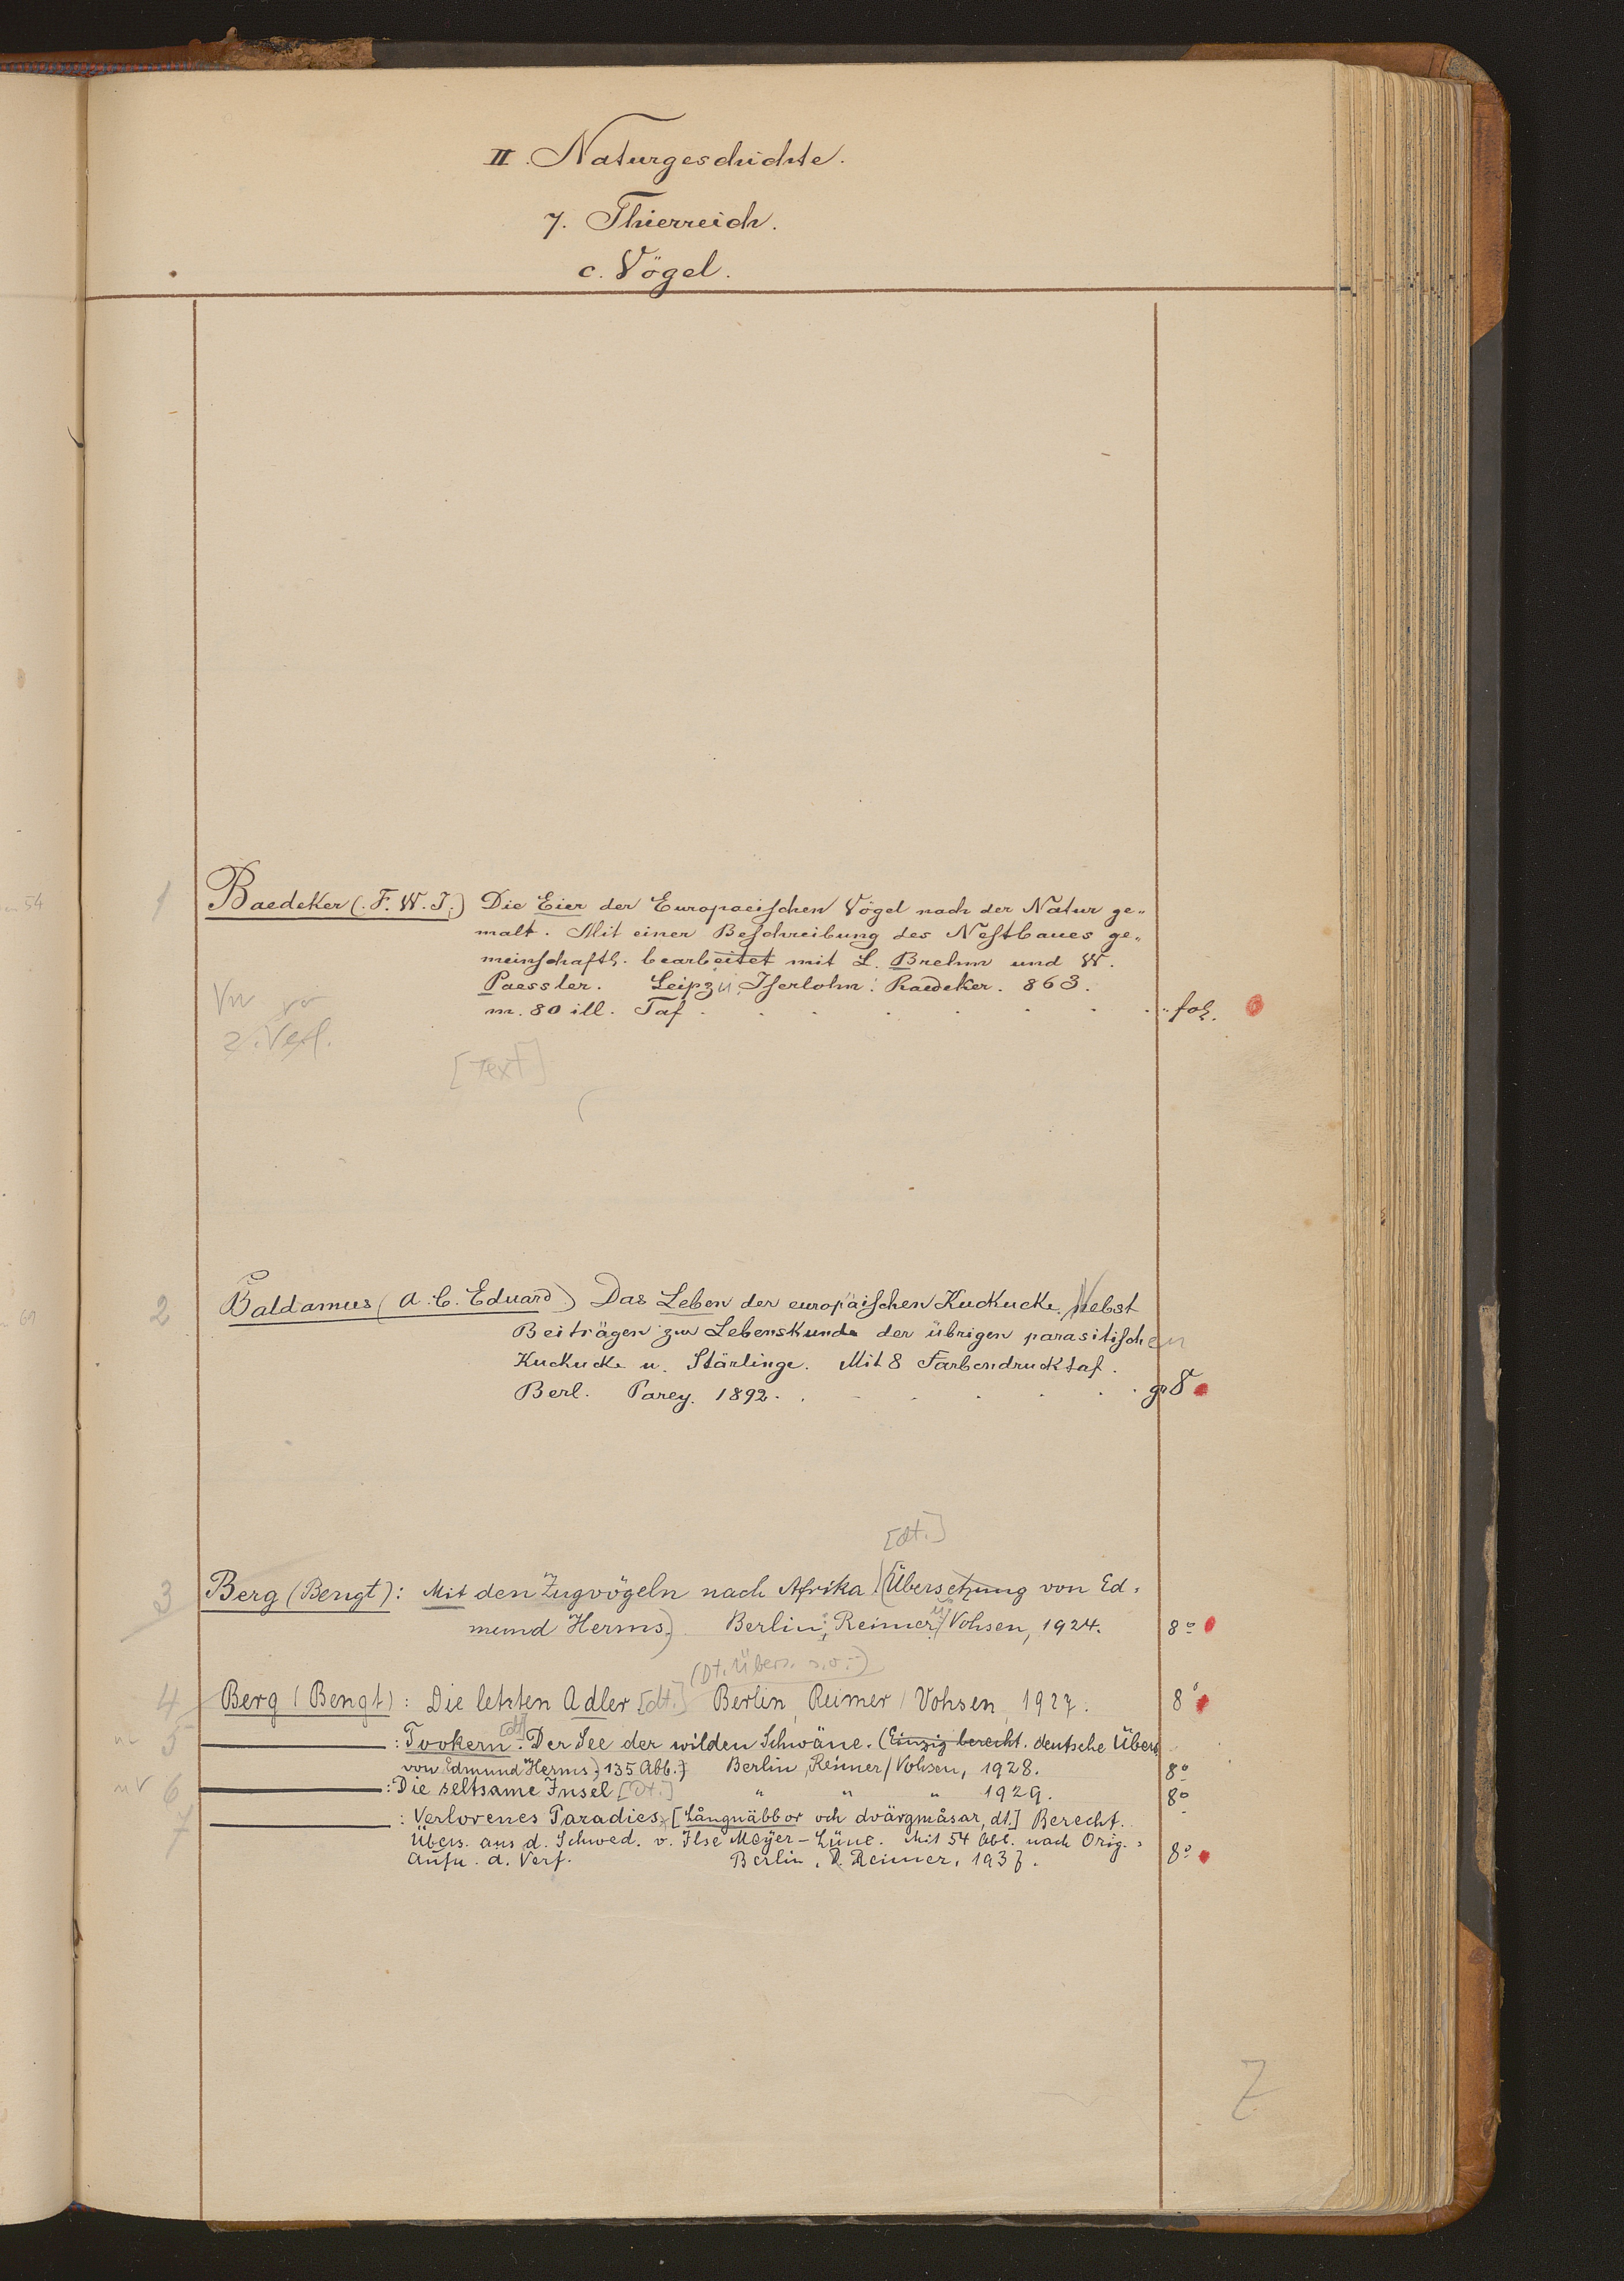 II. Naturgeschichte.
7. Thierreich.
c. Vögel.
1 Baedeker (F. W. J.) Die Eier der Europaeischen Vögel nach der Natur ge-
malt. Mit einer Beschreibung des Nestbaues ge-
meinschaftl. bearbeitet mit L. Brehm und W.
Paessler. Leipz. u. Iserlohn: Baedeker. 863.
m. 80 ill. Taf . . . . . . . fol.
z. Verf.
[Text]
2 Baldamus (A. C. Eduard) Das Leben der europäischen Kuckucke. Nebst
Beiträgen zur Lebenskunde der übrigen parasitischen
Kuckucke u. Stärlinge. Mit 8 Farbendrucktaf.
Berl. Parey. 1892. . . . . . . gr 8
[dt.]
3 Berg (Bengt): Mit den Zugvögeln nach Afrika. (Übersetzung von Ed-
mund Herms.) Berlin: Reimer / Vohsen, 1924. 8°
(Dt. Übers. s.o. -)
4 Berg (Bengt): Die letzten Adler [dt.] Berlin, Reimer / Vohsen, 1927. 8°
5 : Tookern [dt]. Der See der wilden Schwäne. (Einzig berecht. deutsche Übers.
von Edmund Herms.) 135 Abb.) Berlin, Reimer / Vohsen, 1928. 8°
nv 6 : Die seltsame Insel [Dt.] " " " 1929. 8°
7 : Verlorenes Paradies. [Långnäbbor och dvärgmåsar, dt.] Berecht.
Übers. aus d. Schwed. v. Ilse Meyer-Lüne. Mit 54 Abb. nach Orig.-
Aufn. d. Verf. Berlin, D. Reimer, 1937. 8°